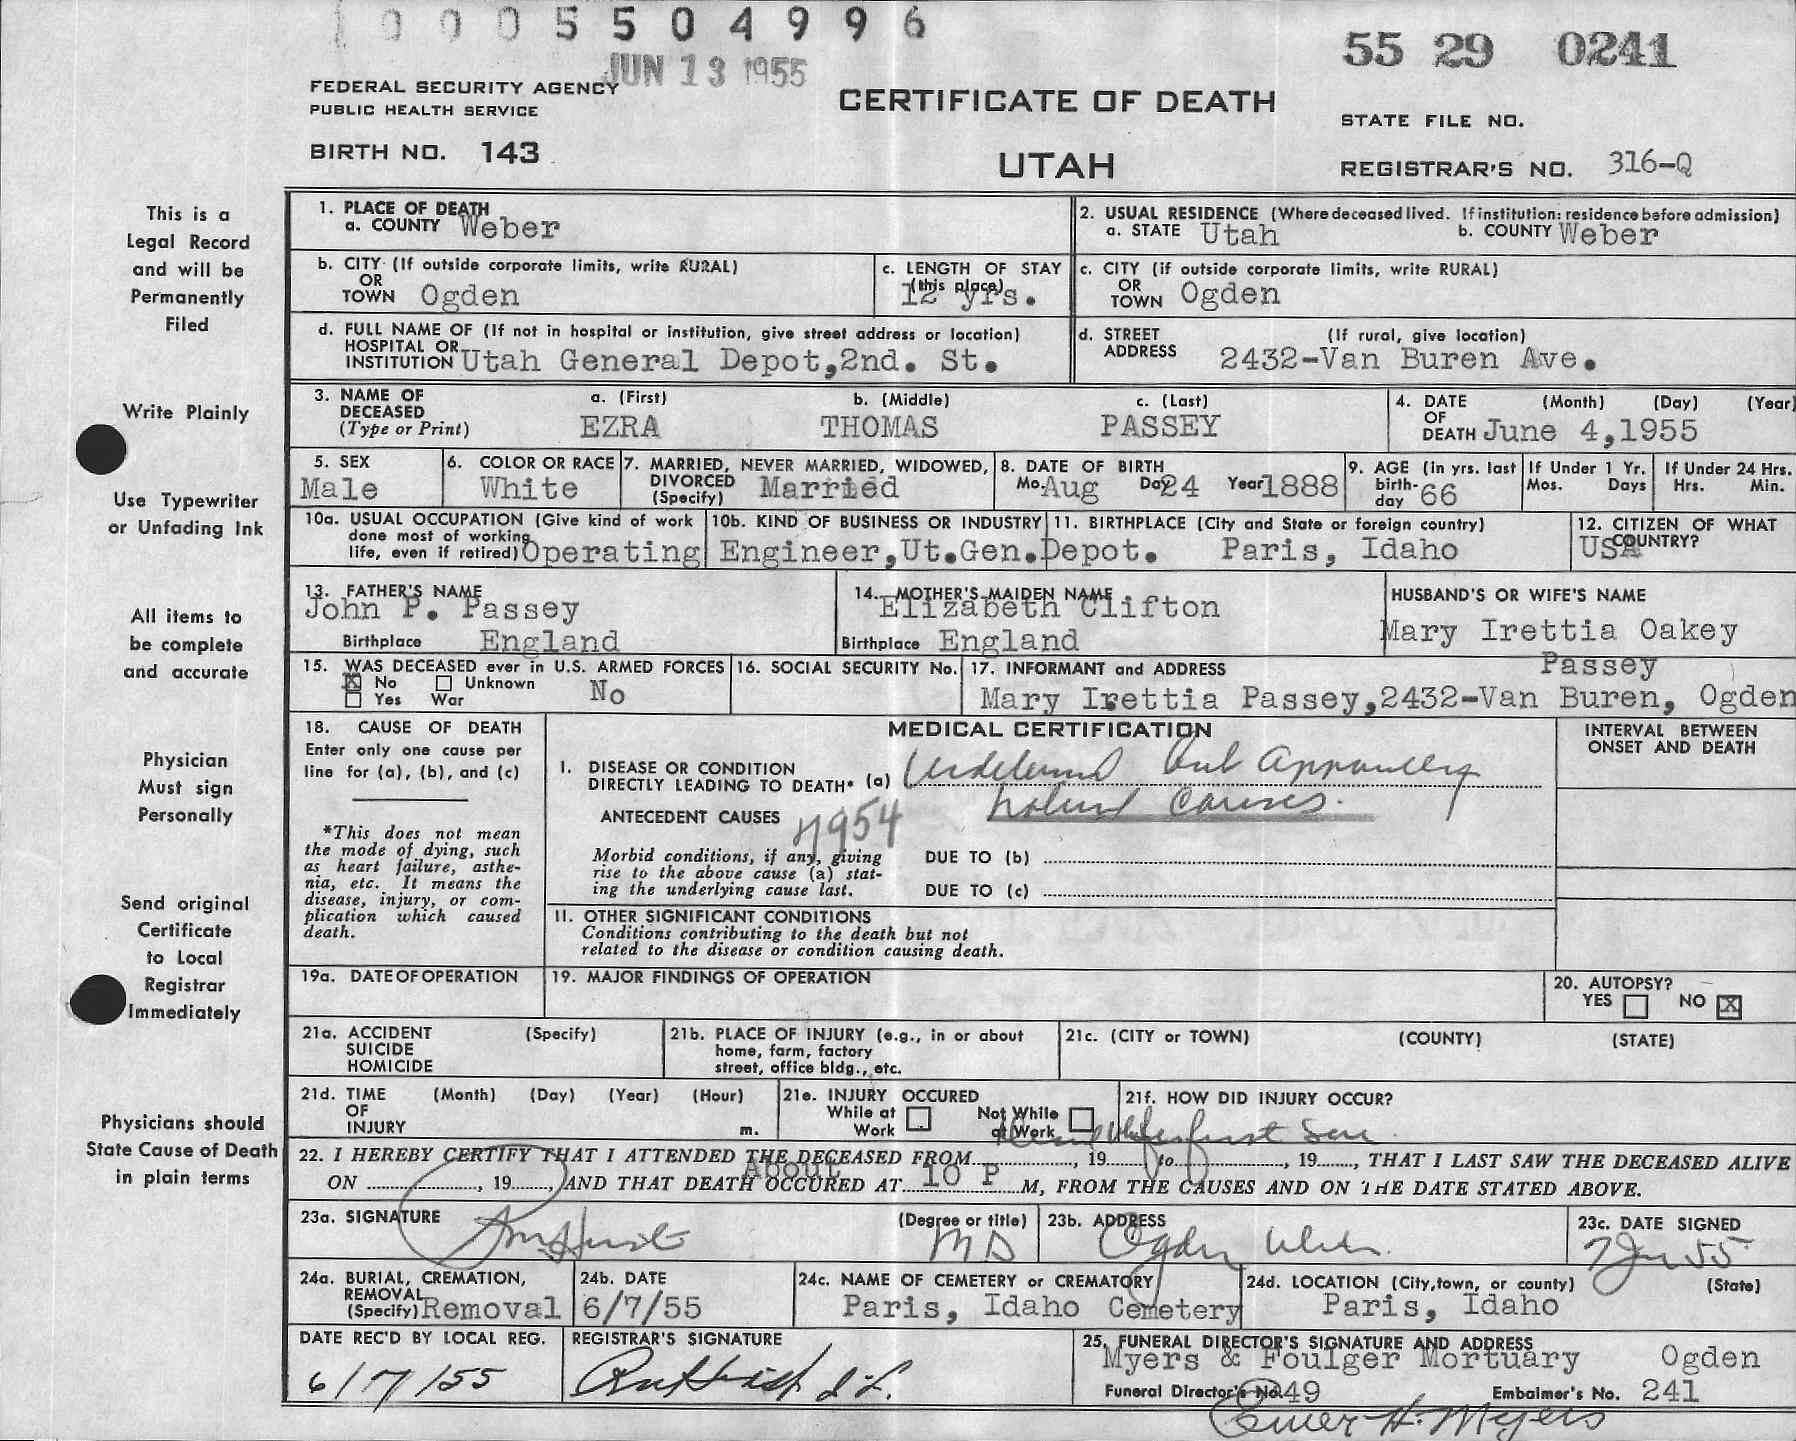 0005504996
JUN 13 1955
55 29 0241
FEDERAL SECURITY AGENCY
PUBLIC HEALTH SERVICE
CERTIFICATE OF DEATH
STATE FILE NO.
BIRTH NO. 143
UTAH
REGISTRAR'S NO. 316-Q
This is a
Legal Record
and will be
Permanently
Filed
Write Plainly
Use Typewriter
or Unfading Ink
All items to
be complete
and accurate
Physician
Must sign
Personally
Send original
Certificate
to Local
Registrar
Immediately
Physicians should
State Cause of Death
in plain terms
1. PLACE OF DEATH
a. COUNTY Weber
2. USUAL RESIDENCE (Where deceased lived. If institution: residence before admission)
a. STATE Utah b. COUNTY Weber
b. CITY (If outside corporate limits, write RURAL)
OR
TOWN Ogden
c. LENGTH OF STAY
(this place)
12 yrs.
c. CITY (if outside corporate limits, write RURAL)
OR
TOWN Ogden
d. FULL NAME OF (If not in hospital or institution, give street address or location)
HOSPITAL OR
INSTITUTION Utah General Depot,2nd. St.
d. STREET (If rural, give location)
ADDRESS 2432-Van Buren Ave.
3. NAME OF
DECEASED
(Type or Print)
a. (First) b. (Middle) c. (Last)
EZRA THOMAS PASSEY
4. DATE (Month) (Day) (Year)
OF
DEATH June 4,1955
5. SEX
Male
6. COLOR OR RACE
White
7. MARRIED, NEVER MARRIED, WIDOWED,
DIVORCED
(Specify) Married
8. DATE OF BIRTH
Mo. Aug Day 24 Year 1888
9. AGE (in yrs. last
birth-
day 66
If Under 1 Yr.
Mos. Days
If Under 24 Hrs.
Hrs. Min.
10a. USUAL OCCUPATION (Give kind of work
done most of working
life, even if retired) Operating
10b. KIND OF BUSINESS OR INDUSTRY
Engineer,Ut.Gen.Depot.
11. BIRTHPLACE (City and State or foreign country)
Paris, Idaho
12. CITIZEN OF WHAT
COUNTRY?
USA
13. FATHER'S NAME
John P. Passey
Birthplace England
14. MOTHER'S MAIDEN NAME
Elizabeth Clifton
Birthplace England
HUSBAND'S OR WIFE'S NAME
Mary Irettia Oakey
Passey
15. WAS DECEASED ever in U.S. ARMED FORCES
No Unknown No
Yes War
16. SOCIAL SECURITY No.
17. INFORMANT and ADDRESS
Mary Irettia Passey,2432-Van Buren, Ogden
18. CAUSE OF DEATH
Enter only one cause per
line for (a), (b), and (c)
*This does not mean
the mode of dying, such
as heart failure, asthe-
nia, etc. It means the
disease, injury, or com-
plication which caused
death.
MEDICAL CERTIFICATION
INTERVAL BETWEEN
ONSET AND DEATH
I. DISEASE OR CONDITION
DIRECTLY LEADING TO DEATH* (a) but apparently
natural causes.
ANTECEDENT CAUSES
7954
Morbid conditions, if any, giving
rise to the above cause (a) stat-
ing the underlying cause last.
DUE TO (b)
DUE TO (c)
II. OTHER SIGNIFICANT CONDITIONS
Conditions contributing to the death but not
related to the disease or condition causing death.
19a. DATE OF OPERATION
19. MAJOR FINDINGS OF OPERATION
20. AUTOPSY?
YES NO X
21a. ACCIDENT (Specify)
SUICIDE
HOMICIDE
21b. PLACE OF INJURY (e.g., in or about
home, farm, factory
street, office bldg., etc.
21c. (CITY or TOWN) (COUNTY) (STATE)
21d. TIME (Month) (Day) (Year) (Hour)
OF
INJURY m.
21e. INJURY OCCURED
While at Work
Not While at Work
21f. HOW DID INJURY OCCUR?
first seen
22. I HEREBY CERTIFY THAT I ATTENDED THE DECEASED FROM , 19 to , 19 , THAT I LAST SAW THE DECEASED ALIVE
ON , 19 , AND THAT DEATH OCCURED AT About 10 P M, FROM THE CAUSES AND ON THE DATE STATED ABOVE.
23a. SIGNATURE
(Degree or title)
MD
23b. ADDRESS
Ogden Utah
23c. DATE SIGNED
7 Jun 55
24a. BURIAL, CREMATION,
REMOVAL
(Specify) Removal
24b. DATE
6/7/55
24c. NAME OF CEMETERY or CREMATORY
Paris, Idaho Cemetery
24d. LOCATION (City, town, or county) (State)
Paris, Idaho
DATE REC'D BY LOCAL REG.
6/7/55
REGISTRAR'S SIGNATURE
25. FUNERAL DIRECTOR'S SIGNATURE AND ADDRESS
Myers & Foulger Mortuary Ogden
Funeral Director's No. 49 Embalmer's No. 241
Elmer H. Myers